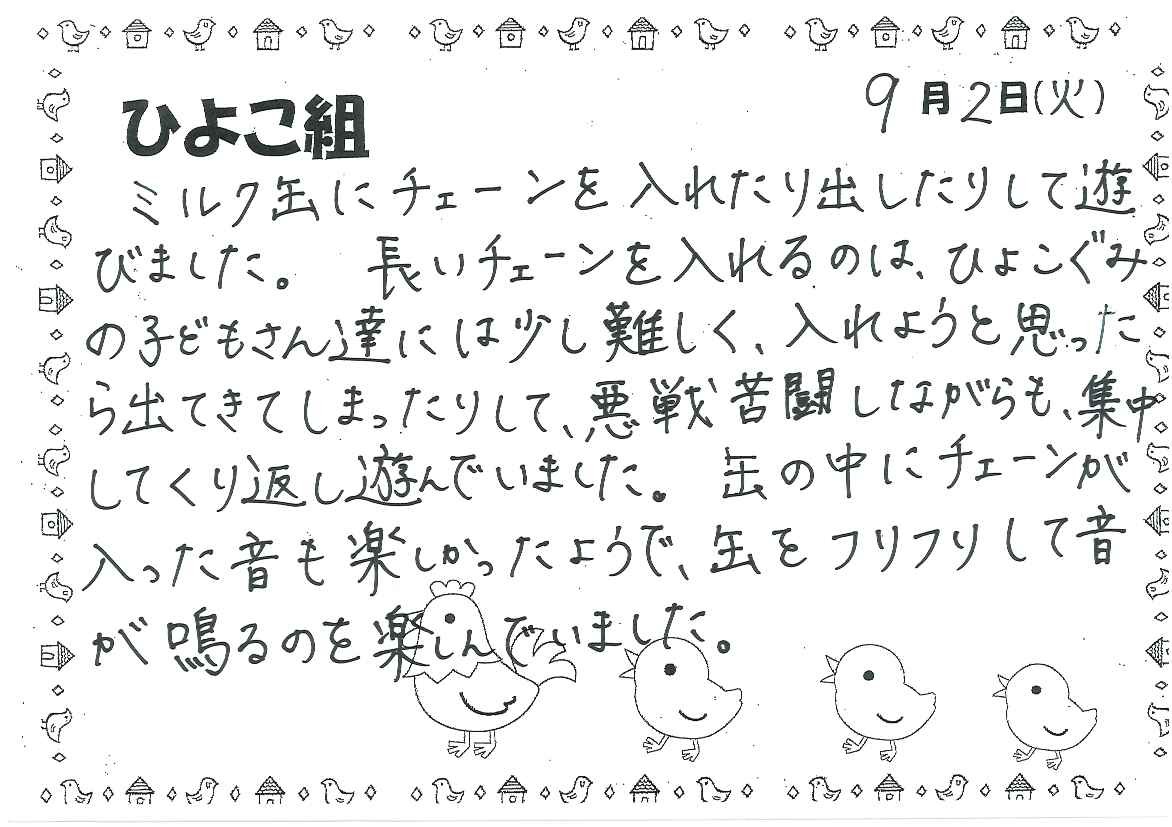 9月2日(火)
ひよこ組
ミルク缶にチェーンを入れたり出したりして遊
びました。 長いチェーンを入れるのは、ひよこぐみ
の子どもさん達には少し難しく、入れようと思った
ら出てきてしまったりして、悪戦苦闘しながらも、集中
してくり返し遊んでいました。 缶の中にチェーンが
入った音も楽しかったようで、缶をフリフリして音
が鳴るのを楽しんでいました。